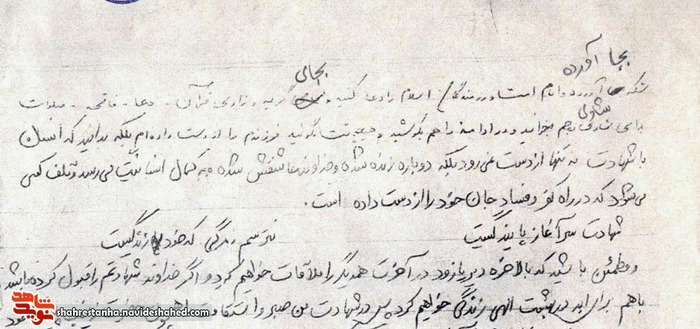 بجا آورده
بجای
شکر آورده و امام امت و رزمندگان اسلام را دعا کنید و گریه و زاری قرآن - دعا - فاتحه - صلوات
شادی
برای هم بخوانید و در ادامه راهم بکوشید و هیچوقت نگوئید فرزندم را از دست داده ام بلکه بدانید که انسان
با شهادت نه تنها از دست نمی رود بلکه دوباره زنده شده و خداوند عاشقش شده و به کمال انسانیت می رسد و تلف کسی
می شود که در راه کفر و فساد جان خود را از دست داده است.
شهادت سرآغاز پایندگیست نترسم ز مرگی که خود زندگیست
و مطمئن باشید که بالاخره دیر یا زود در آخرت همدیگر را ملاقات خواهیم کرد و اگر خداوند شهادتم را قبول کرده باشد
با هم برای ابد در بهشت الهی زندگی خواهیم کرد پس در شهادت من صبر و استقامت
نوید شاهد
shahrestanha.navideshahed.com